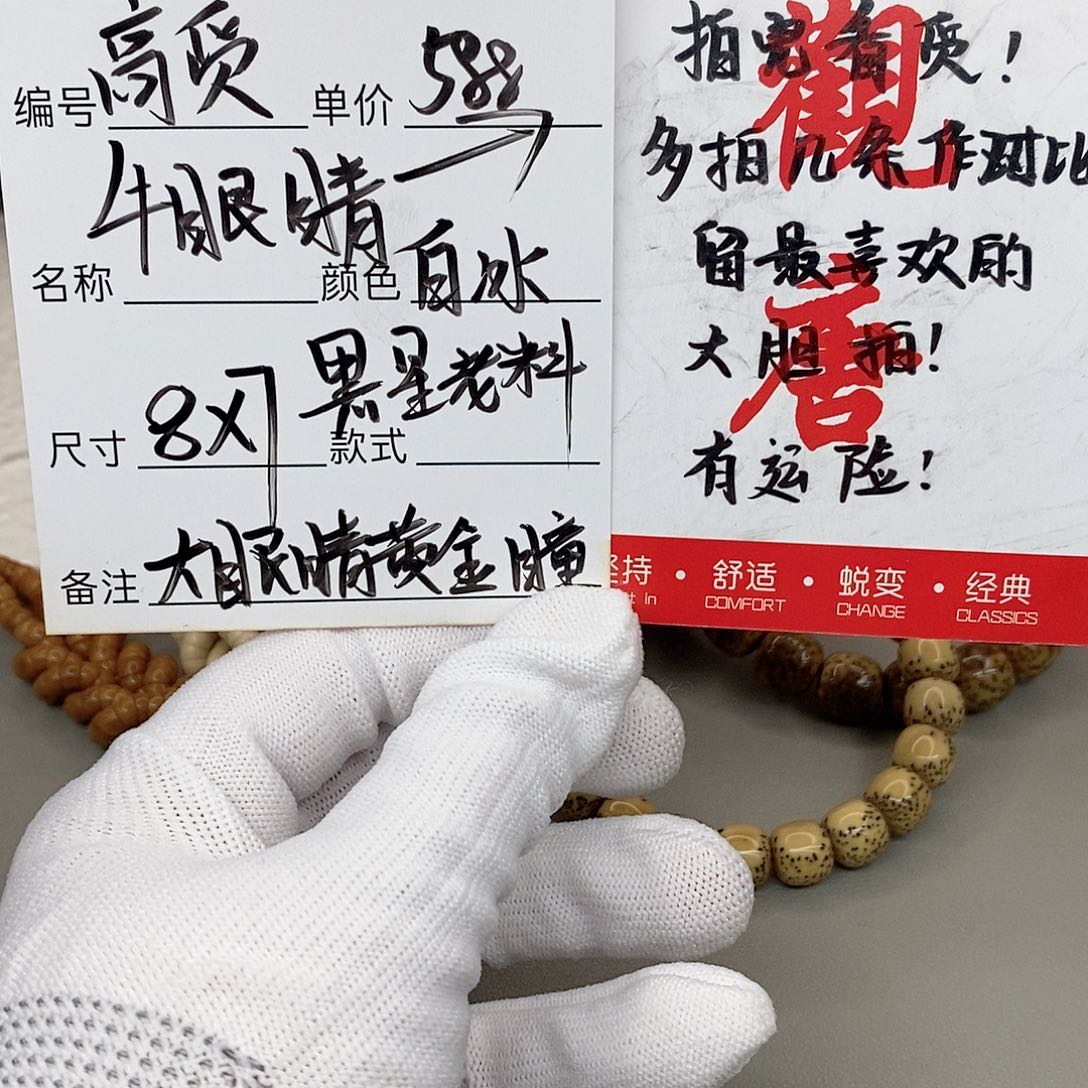 编号 高受 单价 588
牛眼睛
名称 颜色 白冰
黑星老料
尺寸 8X7 款式
备注 大眼睛黄金瞳
受！
多拍几条作对比
留最喜欢的
大胆拍！
有运险！
觀唐
坚持 · 舒适 · 蜕变 · 经典
In COMFORT CHANGE CLASSICS